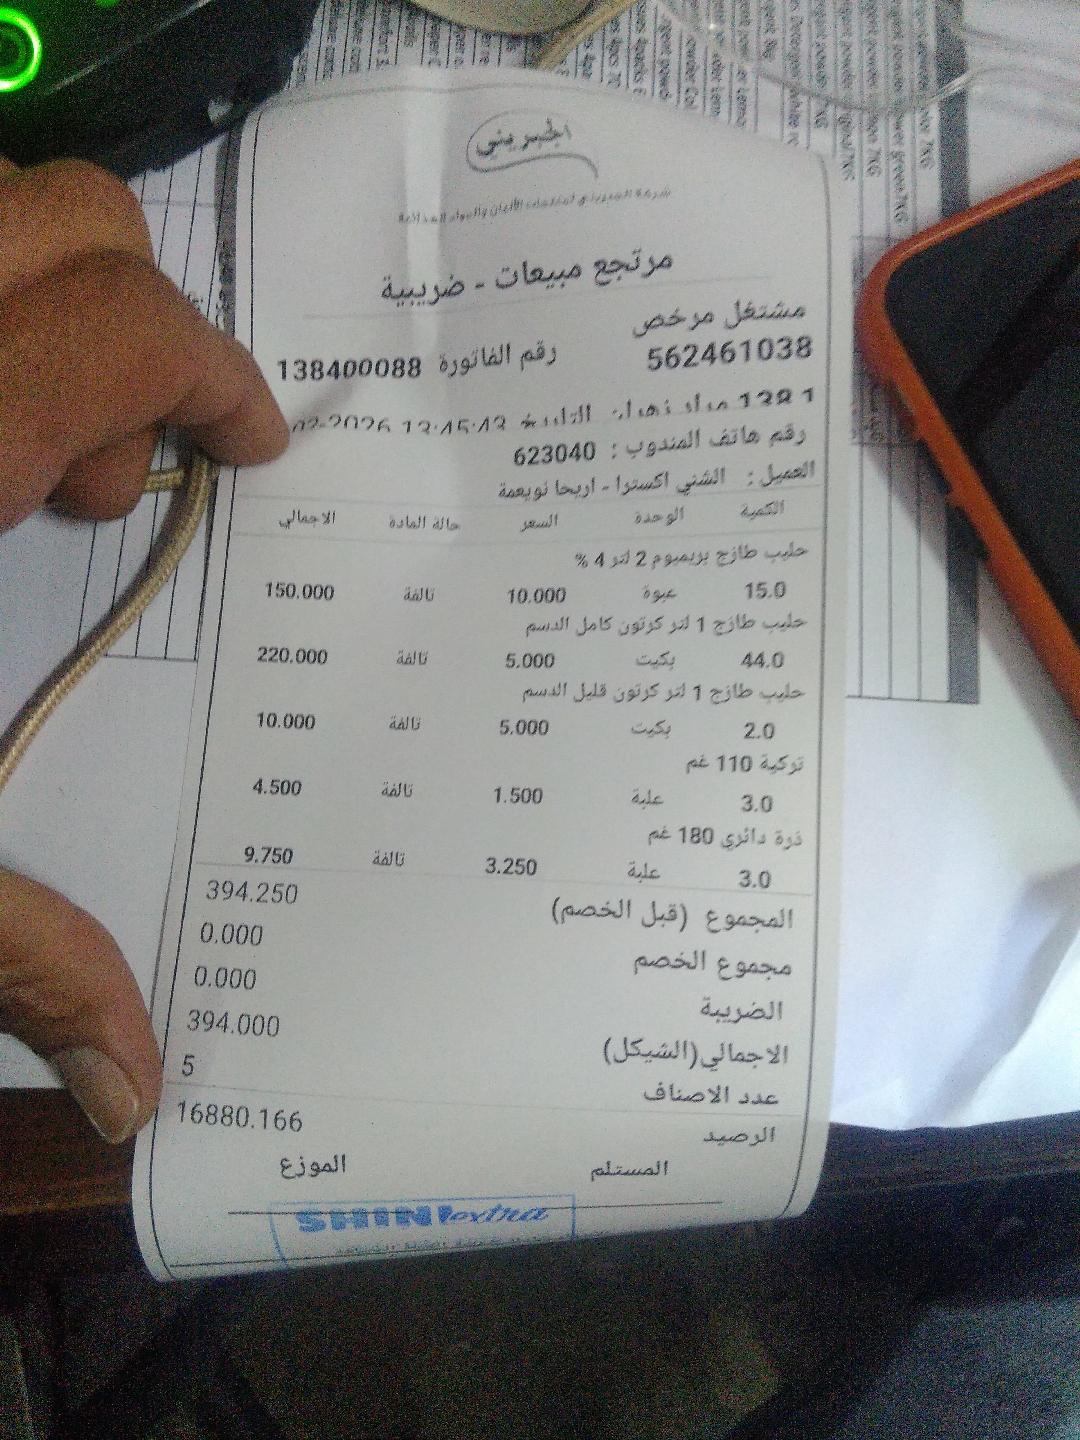 الجبريني
شركة الجبريني لمنتجات الألبان والمواد الغذائية
مرتجع مبيعات - ضريبية
مشتغل مرخص
562461038 رقم الفاتورة 138400088
التاريخ 2026 13:45:43
رقم هاتف المندوب : 623040
العميل : الشني اكسترا - اريحا نويعمة
الكمية الوحدة السعر حالة المادة الاجمالي
حليب طازج بريميوم 2 لتر 4 %
15.0 عبوة 10.000 تالفة 150.000
حليب طازج 1 لتر كرتون كامل الدسم
44.0 بكيت 5.000 تالفة 220.000
حليب طازج 1 لتر كرتون قليل الدسم
2.0 بكيت 5.000 تالفة 10.000
تركية 110 غم
3.0 علبة 1.500 تالفة 4.500
ذرة دائري 180 غم
3.0 علبة 3.250 تالفة 9.750
المجموع (قبل الخصم) 394.250
مجموع الخصم 0.000
الضريبة 0.000
الاجمالي(الشيكل) 394.000
عدد الاصناف 5
الرصيد 16880.166
المستلم الموزع
SHINI extra